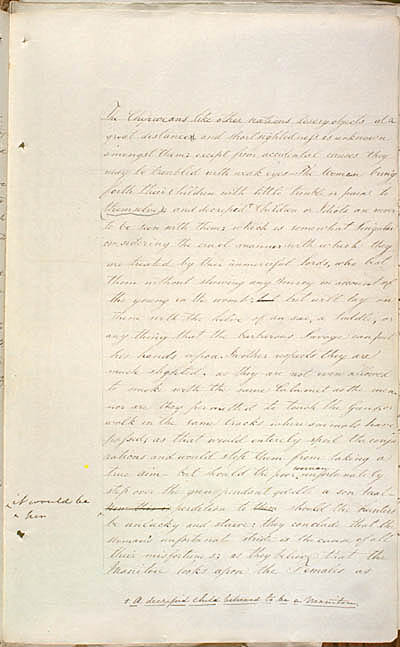 The Chipweans like other nations descry objects at a
great distance and shortsightedness is unknown
amongst them except from accidental causes they
may be troubled with weak eyes The Women bring
forth their Children with little trouble or pain to
themselves and decreped + Children or Idiots are never
to be seen with them, which is somewhat singular
considering the cruel manner with which they
are treated by their unmerciful lords, who beat
them without showing any mercy on account of
the young in the womb but will lay on
them with the helve of an axe, a Paddle, or
any thing that the barberous Savage can put
his hands upon In other respects they are
much slighted. as they are not even allowed
to smoke with the same Calumet as the men
nor are they permitted to touch the Guns or
walk in the same tracks where animals have
passed, as that would entirely spoil the conju
rations and would stop them from taking a
true aim - but should the poor woman unfortunately
step over the gun
it would be
her
perdition to should the hunters
be unlucky and starve, they conclude that the
woman's unfortunate stride is the cause of all
their misfortunes; as they believe that the
Manitou looks upon the Females as
+ A decreped child believed to be a Manitou